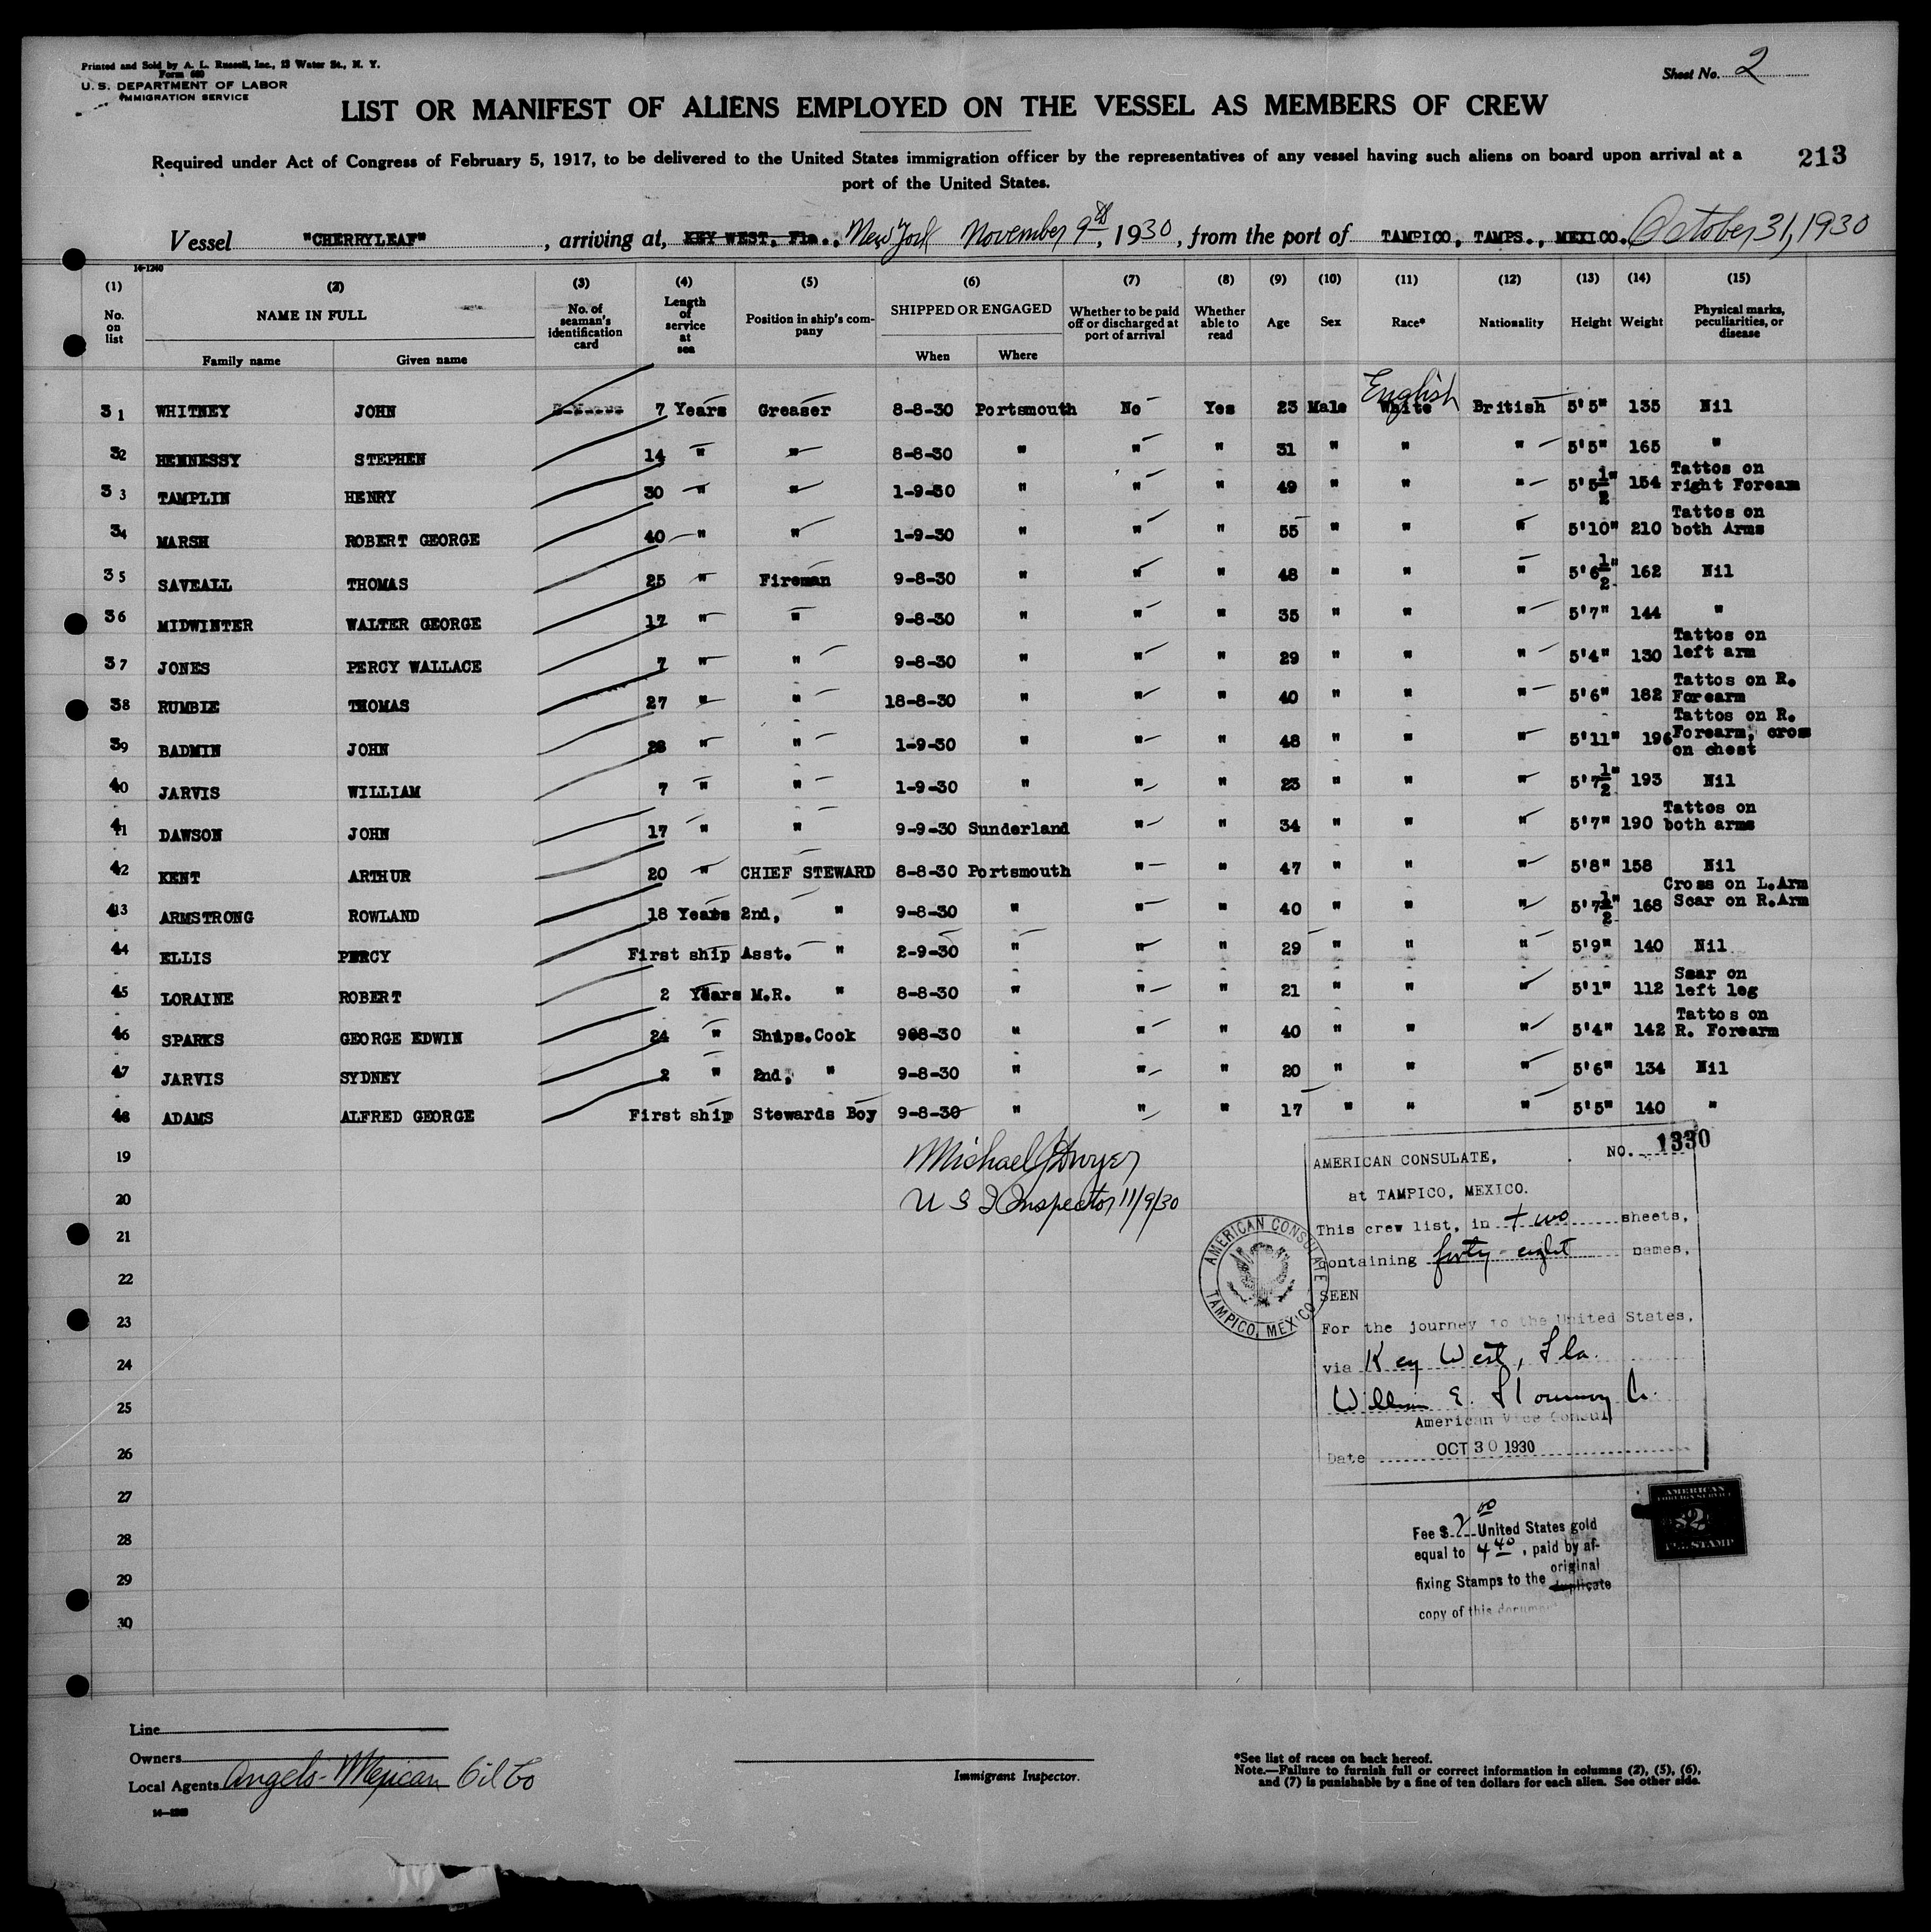 Printed and Sold by A. L. Russell, Inc., 13 Water St., N. Y.
Form 680
U. S. DEPARTMENT OF LABOR
IMMIGRATION SERVICE
Sheet No. 2
LIST OR MANIFEST OF ALIENS EMPLOYED ON THE VESSEL AS MEMBERS OF CREW
Required under Act of Congress of February 5, 1917, to be delivered to the United States immigration officer by the representatives of any vessel having such aliens on board upon arrival at a
port of the United States.
213
Vessel "CHERRYLEAF", arriving at, KEY WEST, Fla., New York November 9th, 1930, from the port of TAMPICO, TAMPS., MEXICO. October 31, 1930
14-1240
(1) (2) (3) (4) (5) (6) (7) (8) (9) (10) (11) (12) (13) (14) (15)
No. on list NAME IN FULL Family name Given name No. of seaman's identification card Length of service at sea Position in ship's company SHIPPED OR ENGAGED When Where Whether to be paid off or discharged at port of arrival Whether able to read Age Sex Race* Nationality Height Weight Physical marks, peculiarities, or disease
English
31 WHITNEY JOHN 7 Years Greaser 8-8-30 Portsmouth No Yes 23 Male White British 5'5" 135 Nil
32 HENNESSY STEPHEN 14 " " 8-8-30 " " " 31 " " " 5'5" 165 "
33 TAMPLIN HENRY 30 " " 1-9-30 " " " 49 " " " 5'5½" 154 Tattos on right Foream
34 MARSH ROBERT GEORGE 40 " " 1-9-30 " " " 55 " " " 5'10" 210 Tattos on both Arms
35 SAVEALL THOMAS 25 " Fireman 9-8-30 " " " 48 " " " 5'6½" 162 Nil
36 MIDWINTER WALTER GEORGE 17 " " 9-8-30 " " " 35 " " " 5'7" 144 "
37 JONES PERCY WALLACE 7 " " 9-8-30 " " " 29 " " " 5'4" 130 Tattos on left arm
38 RUMBLE THOMAS 27 " " 18-8-30 " " " 40 " " " 5'6" 182 Tattos on R. Forearm
39 BADMIN JOHN 28 " " 1-9-30 " " " 48 " " " 5'11" 196 Tattos on R. Forearm, cross on chest
40 JARVIS WILLIAM 7 " " 1-9-30 " " " 23 " " " 5'7½" 193 Nil
41 DAWSON JOHN 17 " " 9-9-30 Sunderland " " 34 " " " 5'7" 190 Tattos on both arms
42 KENT ARTHUR 20 " CHIEF STEWARD 8-8-30 Portsmouth " " 47 " " " 5'8" 158 Nil
43 ARMSTRONG ROWLAND 18 Years 2nd, " 9-8-30 " " " 40 " " " 5'7½" 168 Cross on L.Arm Scar on R.Arm
44 ELLIS PERCY First ship Asst. " 2-9-30 " " " 29 " " " 5'9" 140 Nil
45 LORAINE ROBERT 2 Years M.R. " 8-8-30 " " " 21 " " " 5'1" 112 Scar on left leg
46 SPARKS GEORGE EDWIN 24 " Ships.Cook 908-30 " " " 40 " " " 5'4" 142 Tattos on R. Forearm
47 JARVIS SYDNEY 2 " 2nd, " 9-8-30 " " " 20 " " " 5'6" 134 Nil
48 ADAMS ALFRED GEORGE First ship Stewards Boy 9-8-30 " " " 17 " " " 5'5" 140 "
19
20
21
22
23
24
25
26
27
28
29
30
Michael J Dwyer
U S I Inspector 11/9/30
AMERICAN CONSULATE, NO. 1330
at TAMPICO, MEXICO.
This crew list, in two sheets,
containing forty-eight names,
SEEN
For the journey to the United States,
via Key West, Fla.
William E.
American Vice Consul
Date OCT 30 1930
AMERICAN CONSULATE
TAMPICO, MEXICO
AMERICAN
FOREIGN SERVICE
$2
FEE STAMP
Fee $ 2 00 United States gold
equal to 4 40, paid by af-
fixing Stamps to the original duplicate
copy of this document
Line
Owners
Local Agents Anglo-Mexican Oil Co
Immigrant Inspector.
*See list of races on back hereof.
Note.—Failure to furnish full or correct information in columns (2), (5), (6),
and (7) is punishable by a fine of ten dollars for each alien. See other side.